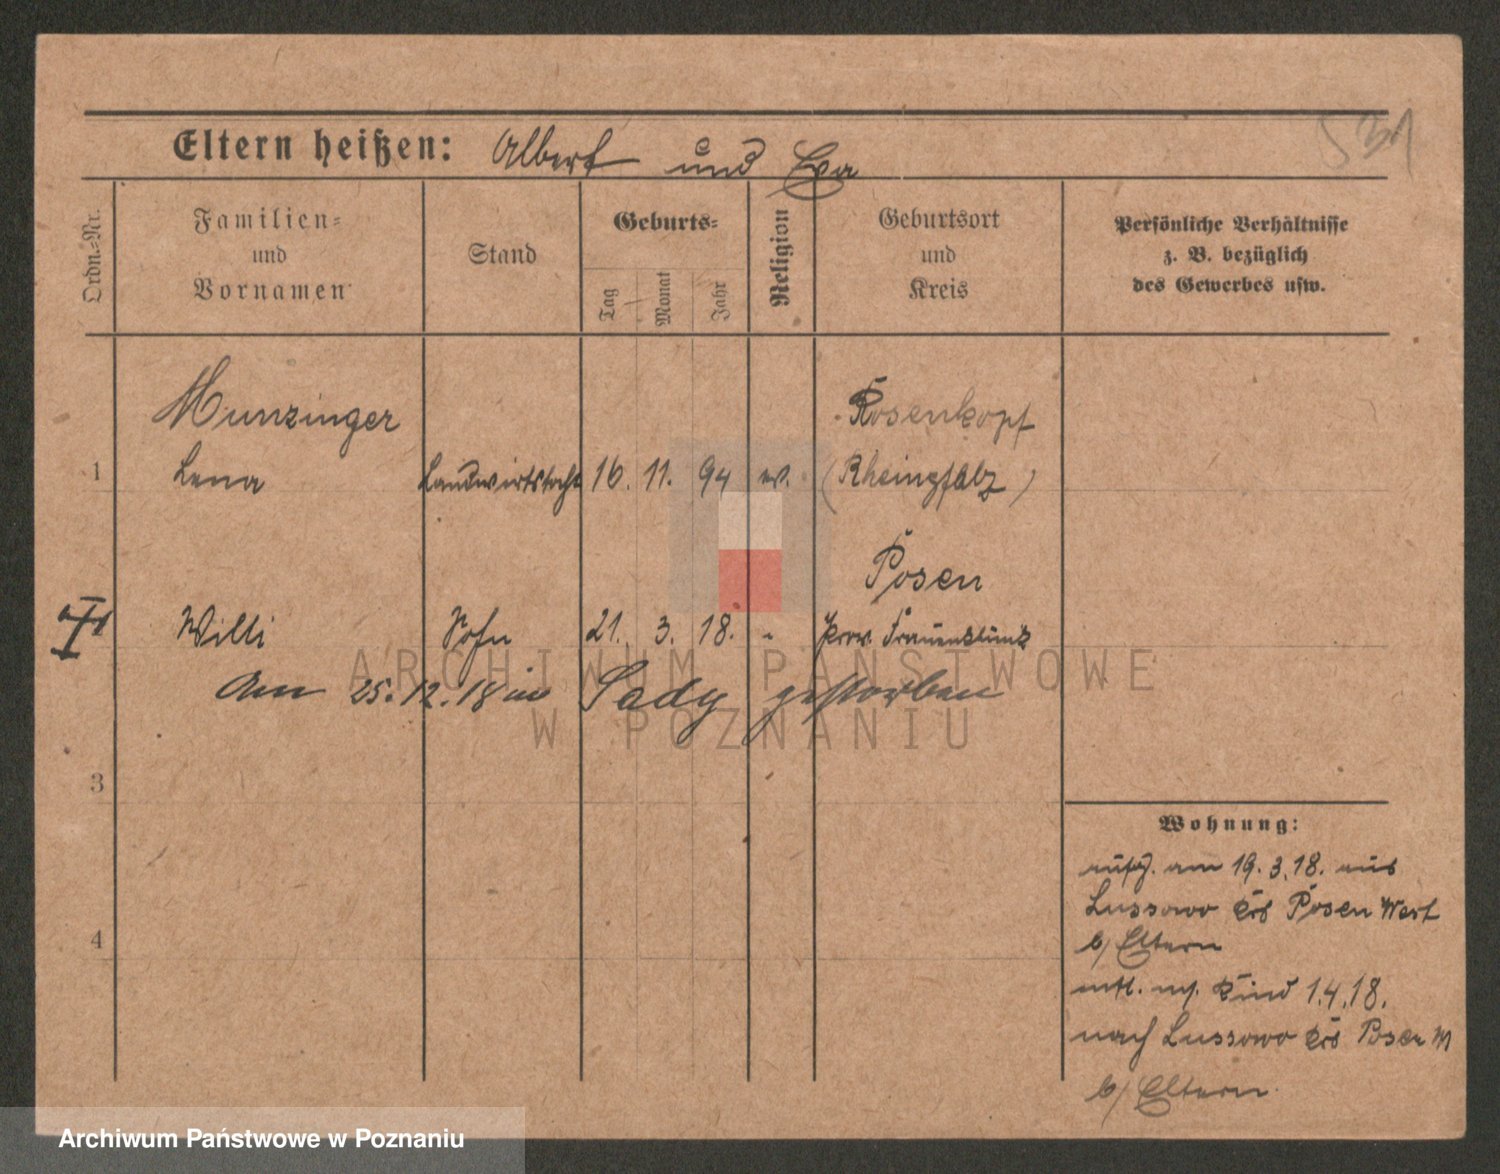 531
Eltern heißen: Albert und Eva
Ordn.=Nr.
Familien=
und
Vornamen
Stand
Geburts=
Tag
Monat
Jahr
Religion
Geburtsort
und
Kreis
Persönliche Verhältnisse
z. B. bezüglich
des Gewerbes usw.
Munzinger Rosenkopf
1 Lena Landwirtstocht 16. 11. 94 ev. (Rheinpfalz)
Posen
Willi Sohn 21. 3. 18. " Prov. Frauenklinik
Am 25.12.18 in Sady gestorben
3
4
Wohnung:
am 19.3.18. aus
Lussowo Krs Posen West
b/ Eltern
Kind 1.4.18.
nach Lussowo Krs Posen W
b/ Eltern
ARCHIWUM PAŃSTWOWE
W POZNANIU
Archiwum Państwowe w Poznaniu